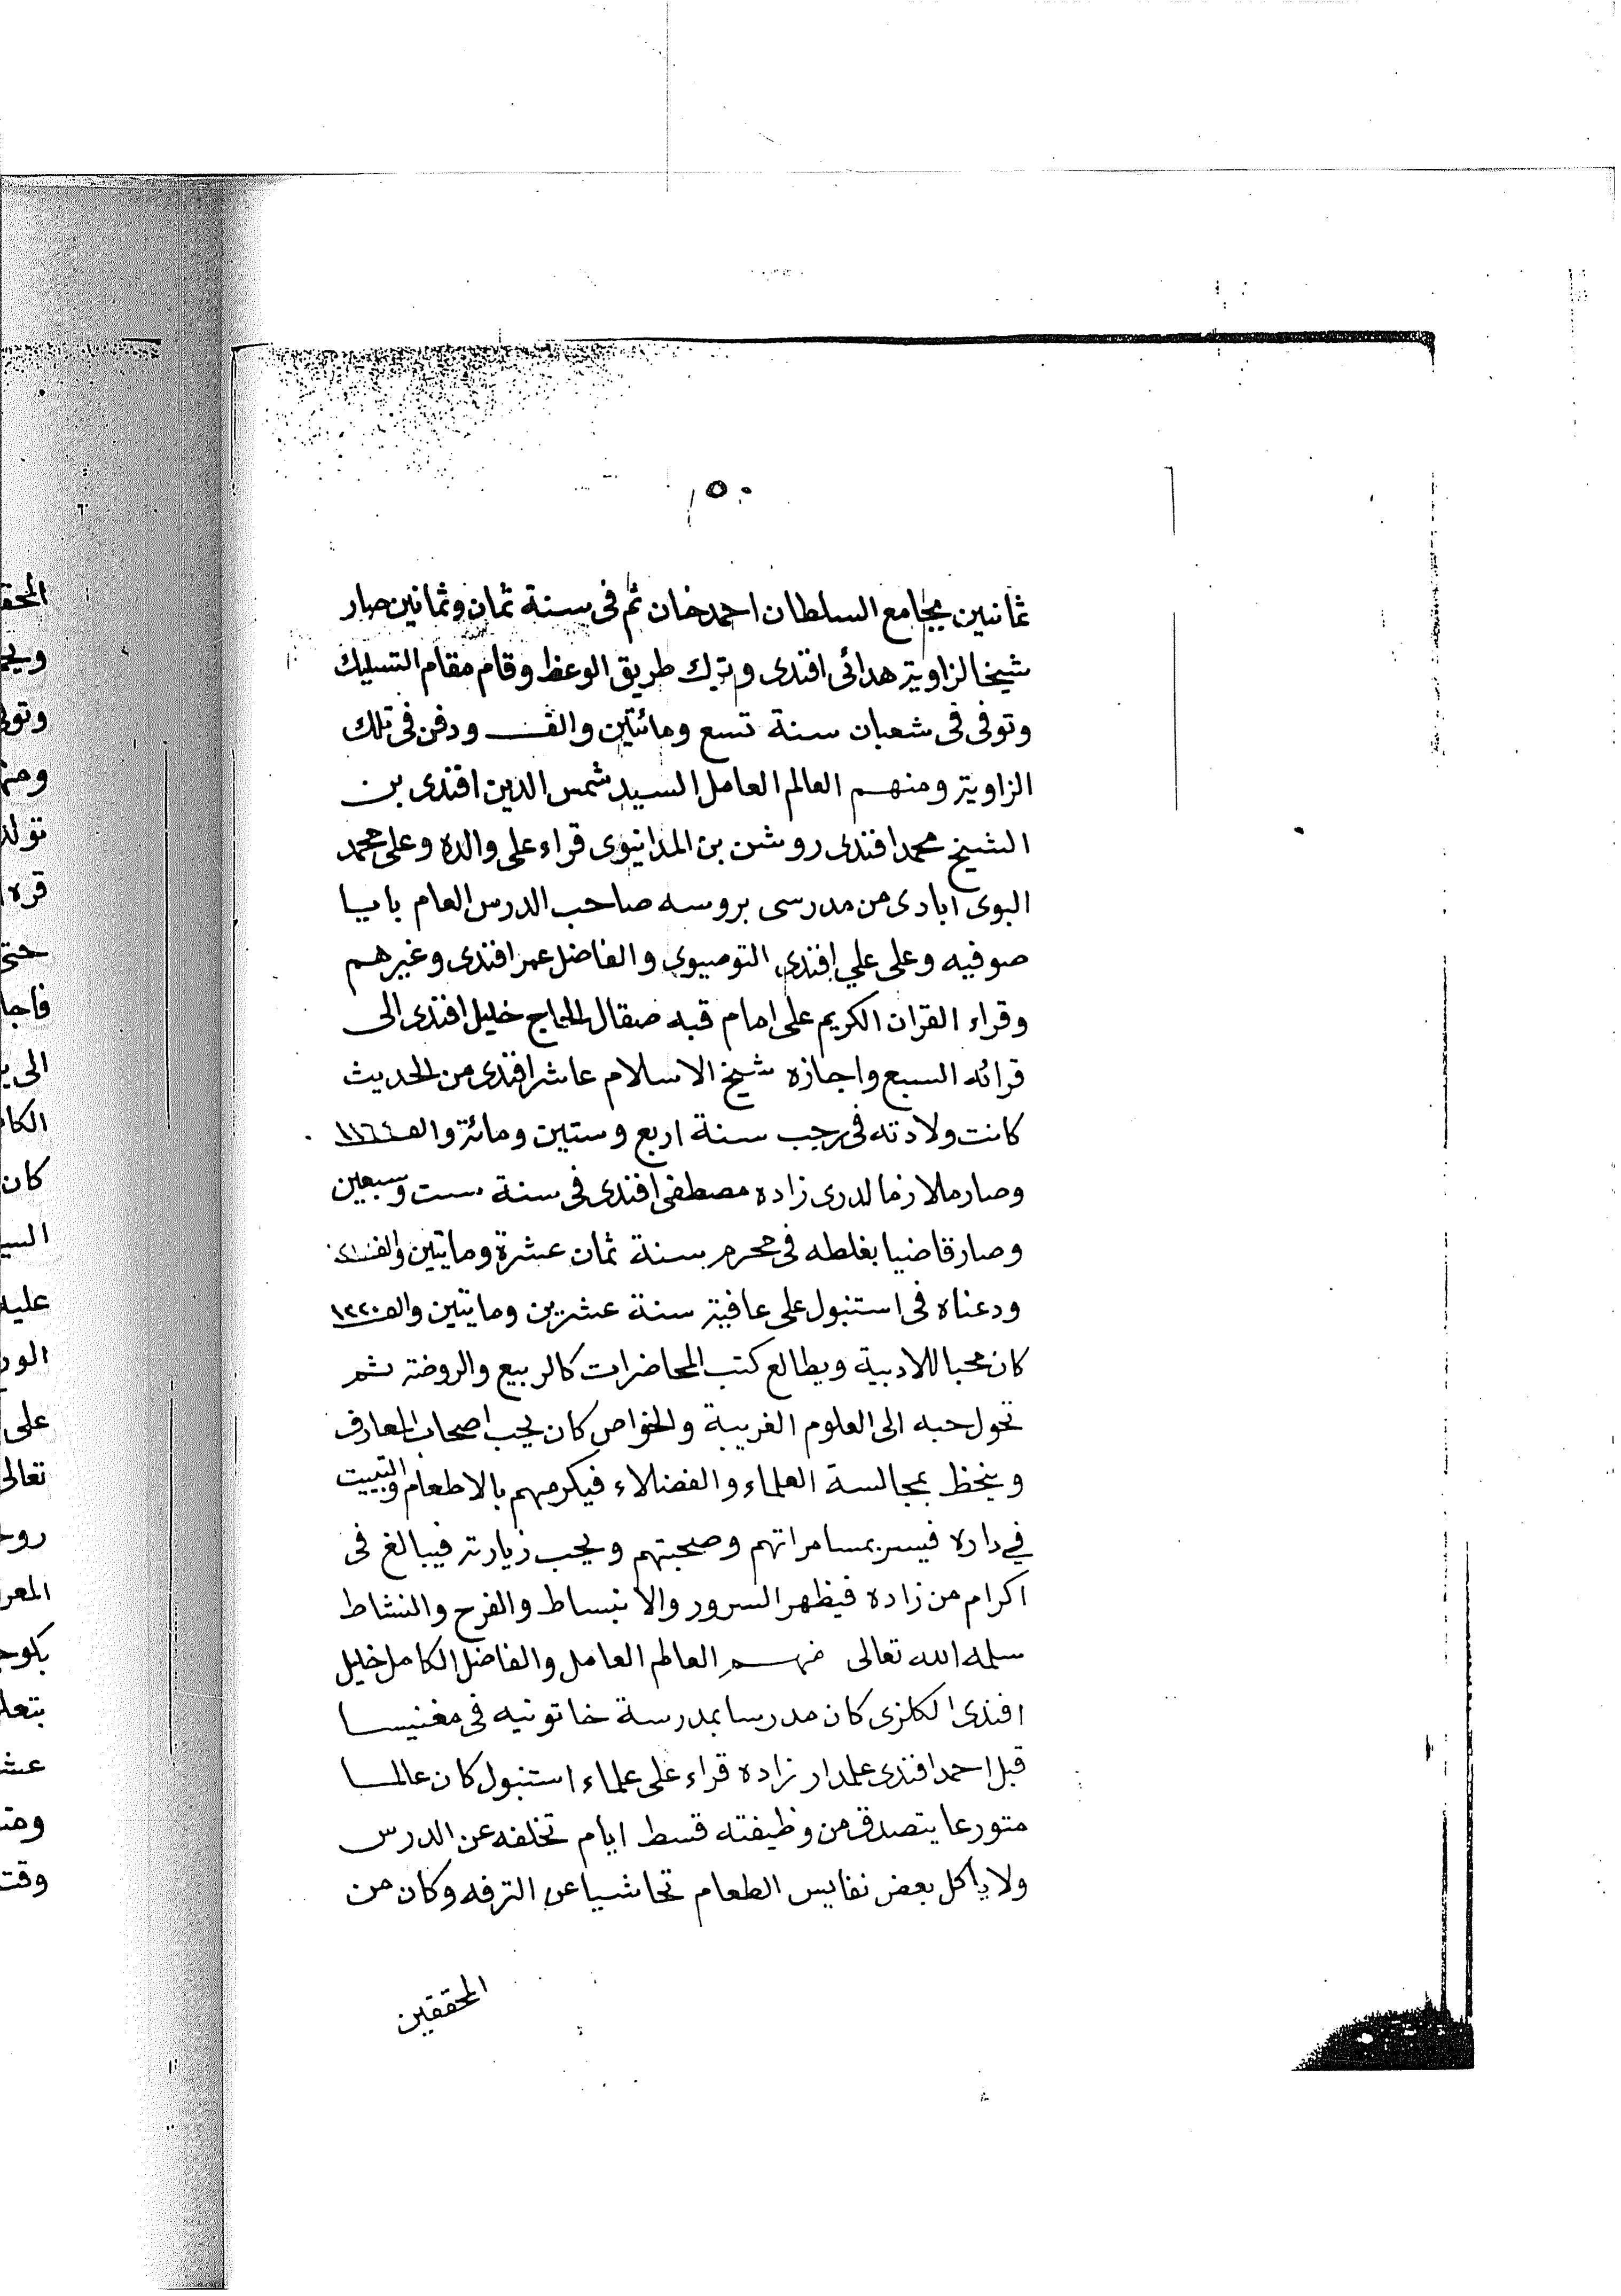 ١٥٠
ثمانين بجامع السلطان احمد خان ثم فى سنة ثمان وثمانين صار
شيخا لزاوية هدائى افندى وترك طريق الوعظ وقام مقام التسليك
وتوفى فى شعبان سنة تسع ومائتين والف ودفن فى تلك
الزاوية ومنهم العالم العامل السيد شمس الدين افندى بن
الشيخ محمد افندى روشن بن المدانيوى قراء على والده وعلى محمد
البوى ابادى من مدرسى بروسه صاحب الدرس العام بايا
صوفيه وعلى علي افندى التوسيوي والفاضل عمر افندى وغيرهم
وقراء القران الكريم على امام قبه صقال الحاج خليل افندى الى
قرائه السبع واجازه شيخ الاسلام عاشر افندى من الحديث
كانت ولادته فى رجب سنة اربع وستين ومائة والف ١١٦٤
وصار ملازما لدرى زاده مصطفى افندى فى سنة ست وسبعين
وصار قاضيا بغلطه فى محرم سنة ثمان عشرة ومايتين والف
ودعناه فى استنبول على عافية سنة عشرين ومايتين والف ١٢٢٠
كان محبا للادبية ويطالع كتب المحاضرات كالربيع والروضة ثم
تحول حبه الى العلوم الغريبة والخواص كان يحب اصحاب المعارف
وينحظ بمجالسة العلماء والفضلاء فيكرمهم بالاطعام والتبييت
في داره فيسر بمسامراتهم وصحبتهم ويحب زيارته فيبالغ فى
اكرام من زاده فيظهر السرور والانبساط والفرح والنشاط
سلمه الله تعالى فمنهم العالم العامل والفاضل الكامل خليل
افندى الكلزى كان مدرسا بمدرسة خاتونيه فى مغنيسا
قبل احمد افندى علمدار زاده قراء على علماء استنبول كان عالما
متورعا يتصدق من وظيفته قسط ايام تخلفه عن الدرس
ولا يأكل بعض نفايس الطعام تحاشيا عن الترفه وكان من
المحققين